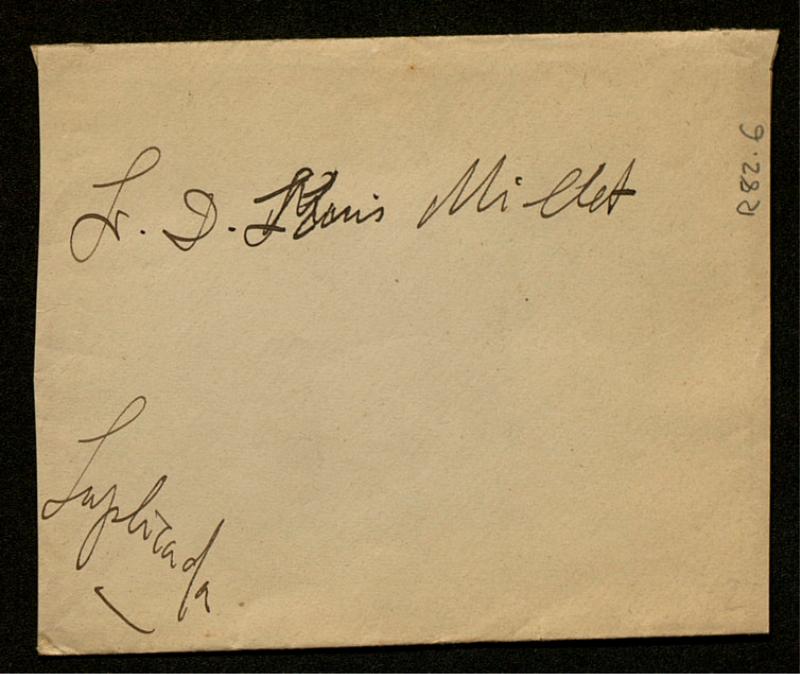 Sr. D. Lluis Millet
Suplicada
R82.6